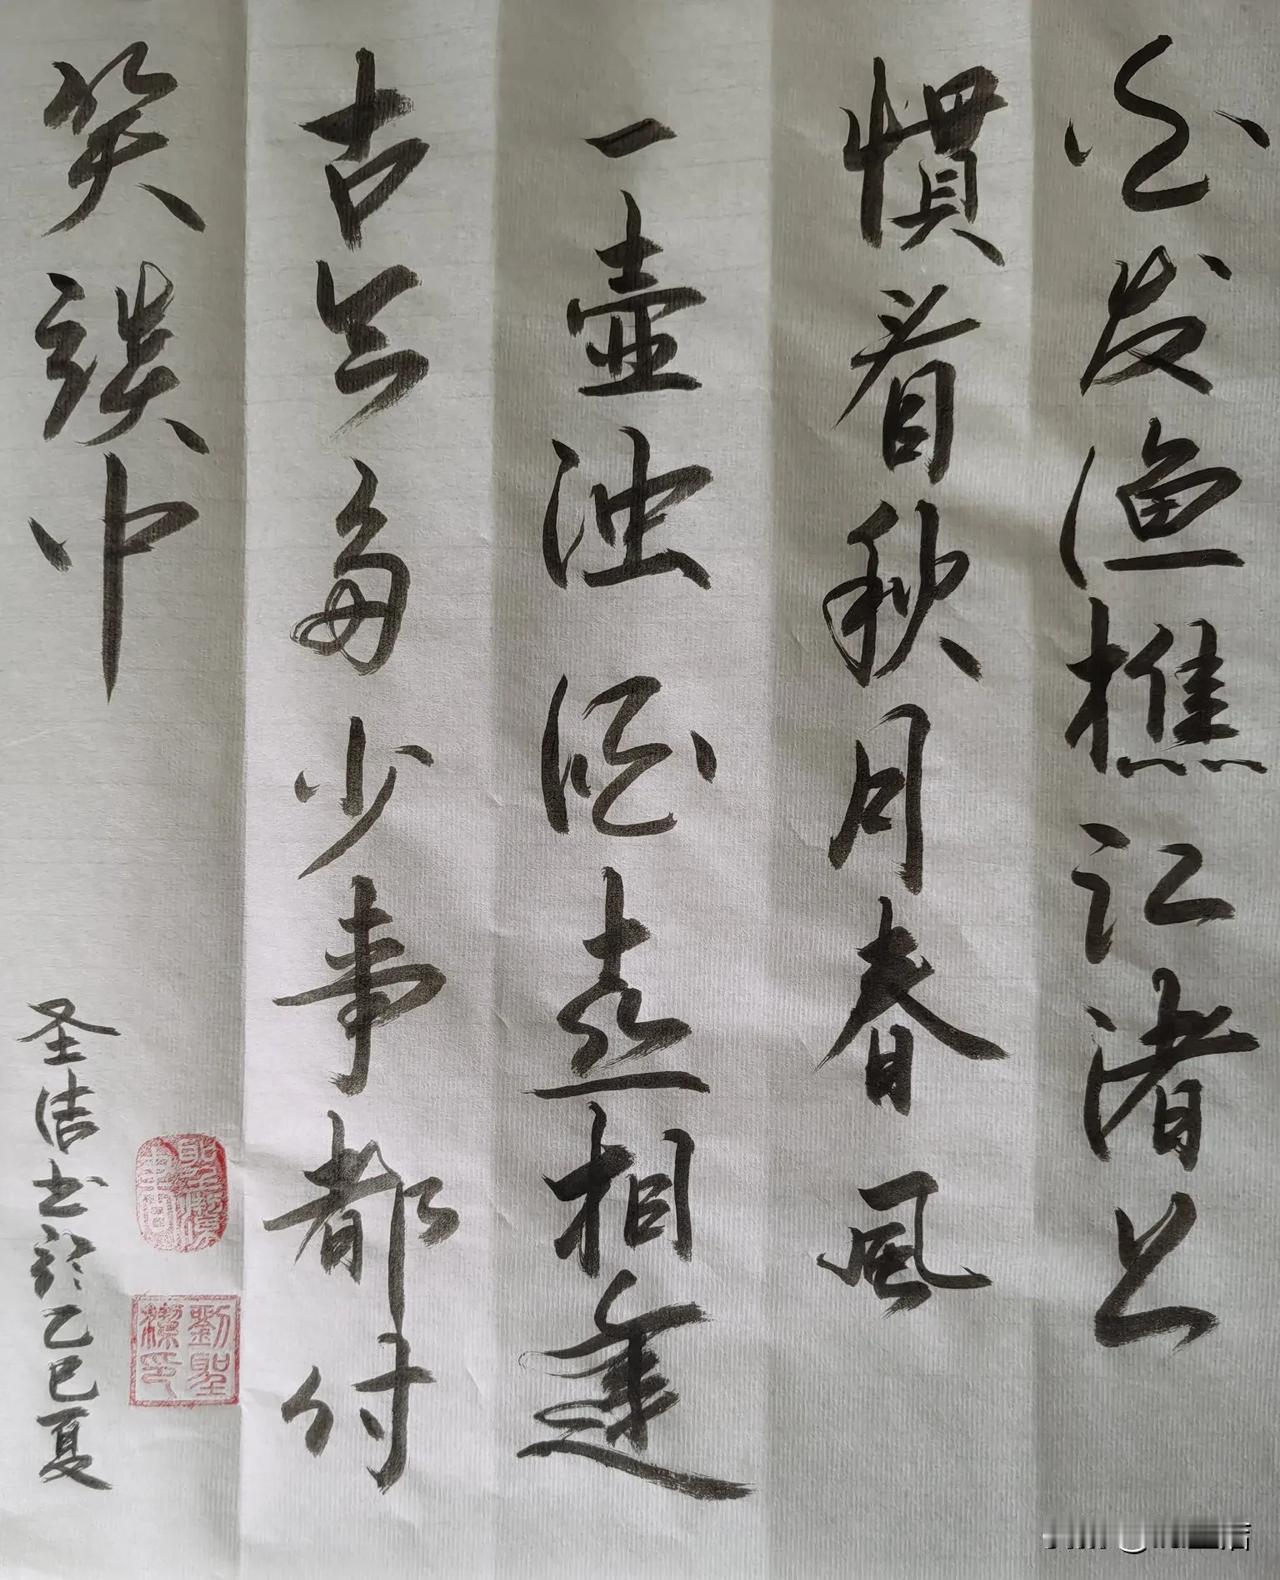 白发渔樵江渚上
惯看秋月春风
一壶浊酒喜相逢
古今多少事都付
笑谈中
圣洁书於乙巳夏
劉聖潔印